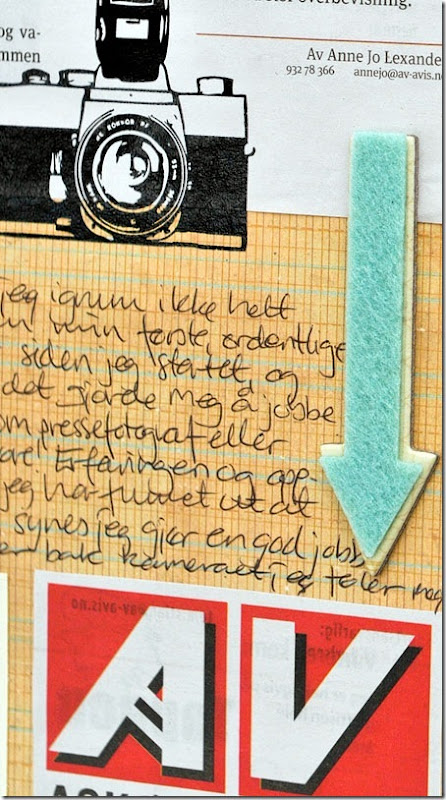 overbevisning.
og va-
mmen
Av Anne Jo Lexande
932 78 366 annejo@av-avis.n
jeg ikke helt
min første, ordentlige
siden jeg startet, og
det gjorde meg å jobbe
om pressefotograf eller
are. Erfaringen og opp-
jeg har funnet ut at
synes jeg gjør en god jobb
er bak kameraet, jeg føler meg
AV